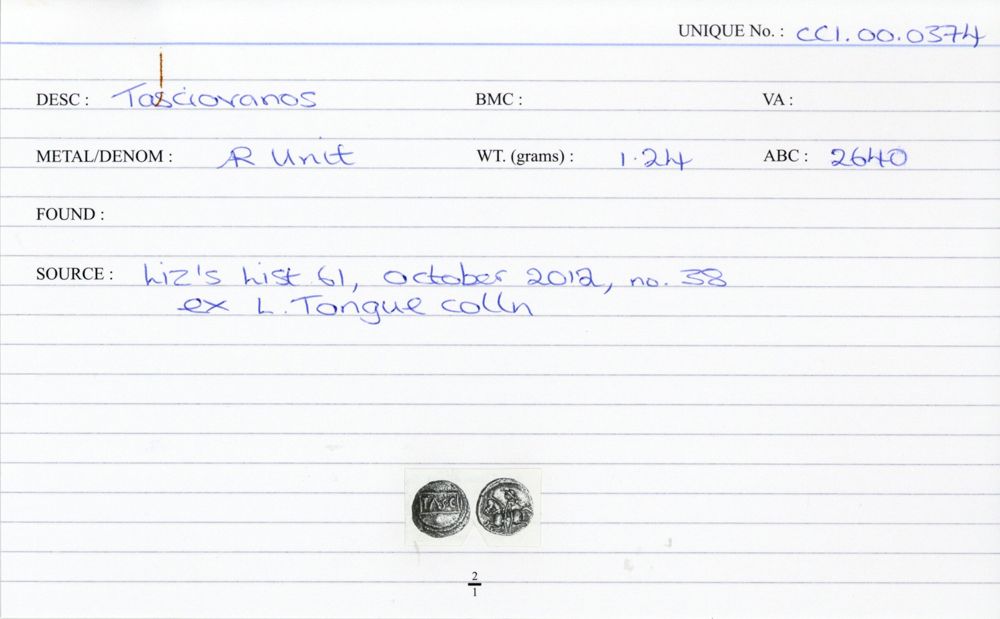 UNIQUE No. : CCI.00.0374
DESC : Tasciovanos BMC : VA :
METAL/DENOM : AR Unit WT. (grams) : 1.24 ABC : 2640
FOUND :
SOURCE : Liz's List 61, October 2012, no. 38
ex L. Tongue colln
TASCI
2
1